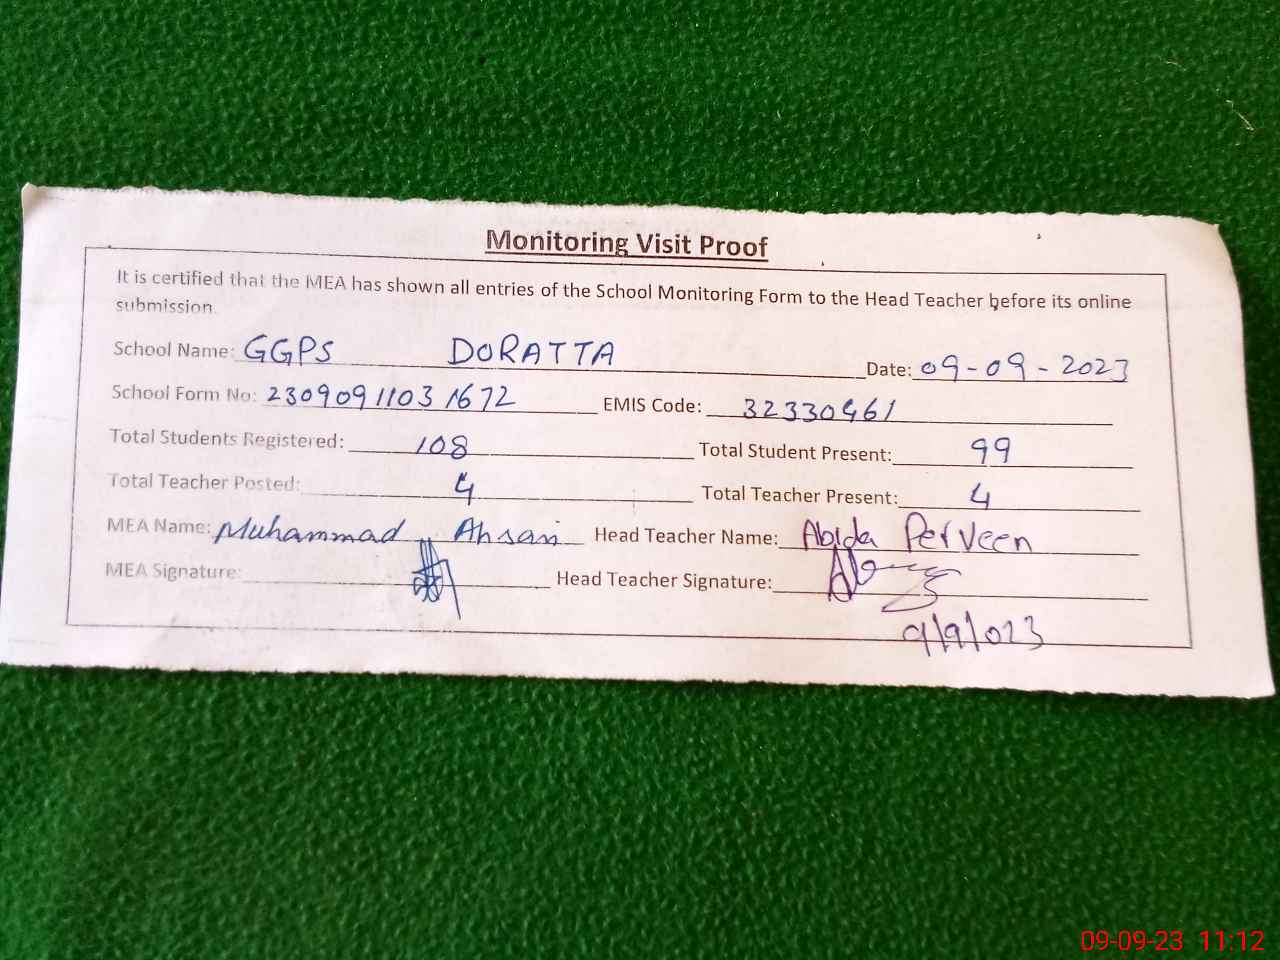 Monitoring Visit Proof
It is certified that the MEA has shown all entries of the School Monitoring Form to the Head Teacher before its online
submission.
School Name: GGPS DORATTA Date: 09-09-2023
School Form No: 23090911031672 EMIS Code: 32330461
Total Students Registered: 108 Total Student Present: 99
Total Teacher Posted: 4 Total Teacher Present: 4
MEA Name: Muhammad Ahsan Head Teacher Name: Abida Perveen
MEA Signature: Head Teacher Signature:
9/9/023
09-09-23 11:12